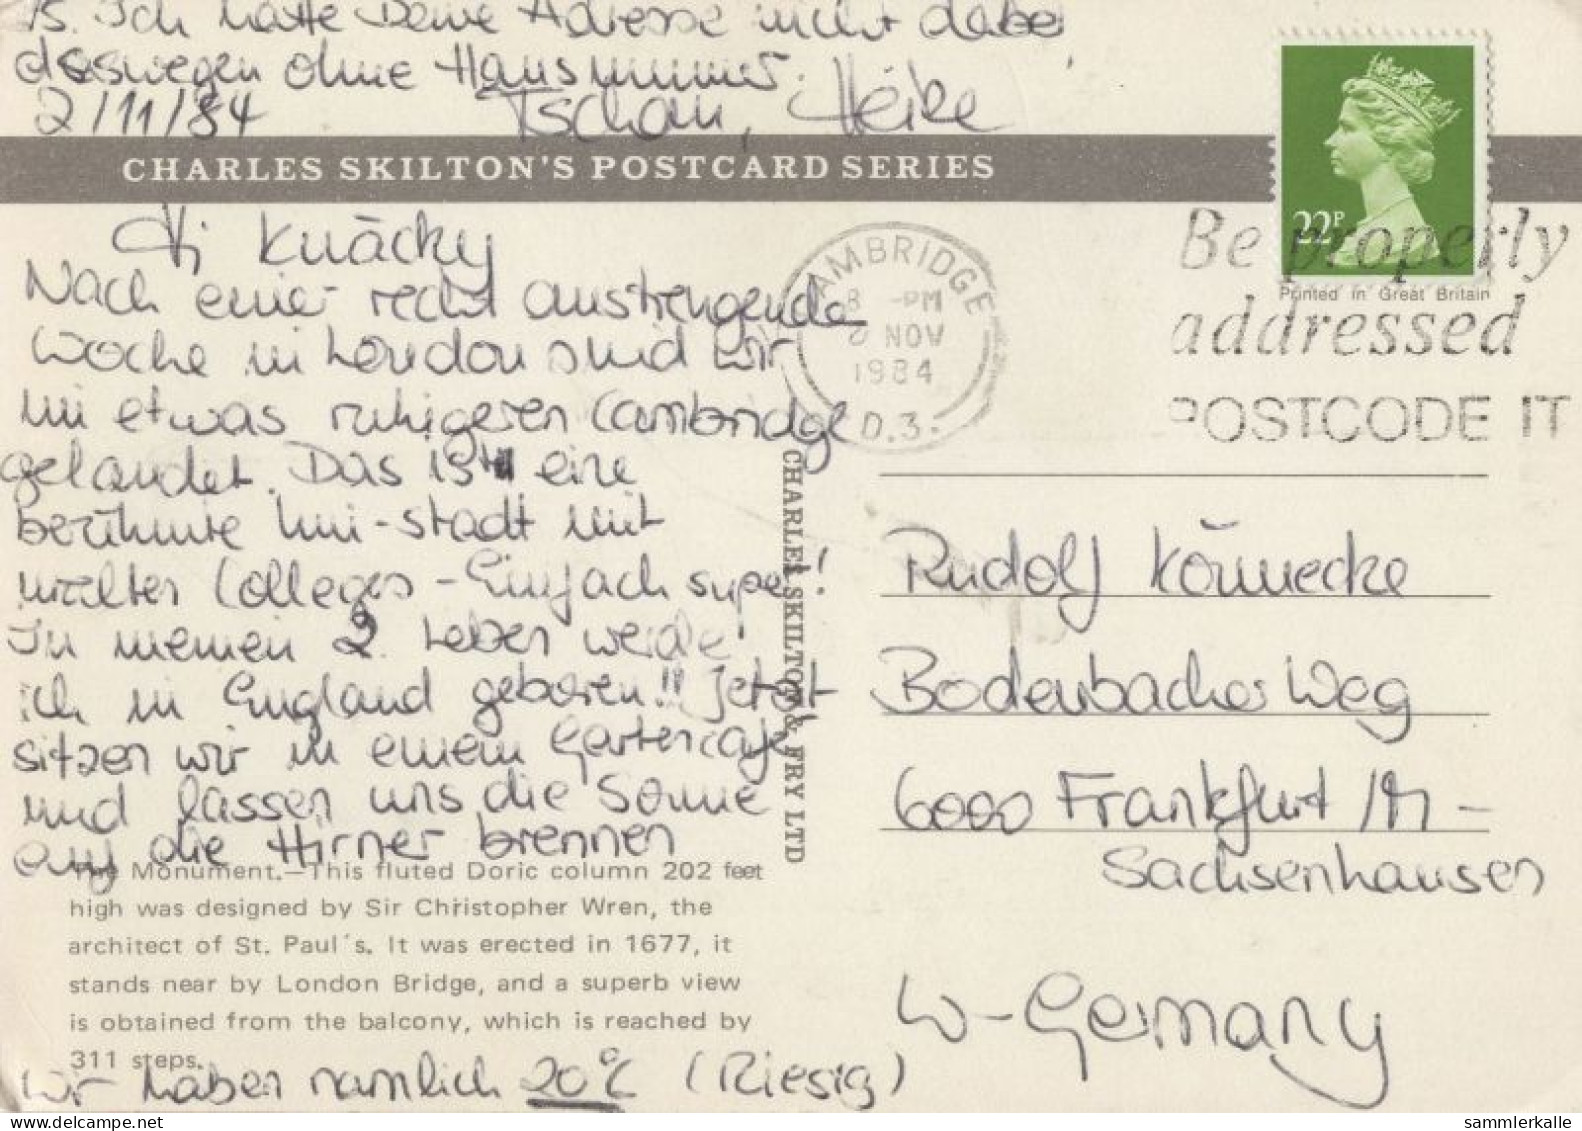 PS. Ich hatte Deine Adresse nicht dabei,
deswegen ohne Hausnummer.
2/11/84 Tschau, Heike
CHARLES SKILTON'S POSTCARD SERIES
Hi Knäcky
Nach einer recht anstrengenden
Woche in London sind wir
im etwas ruhigeren Cambridge
gelandet. Das ist eine
berühmte Uni-stadt mit
Colleges - Einfach super!
In meinen 2. Leben werde
ich in England geboren!!! Jetzt
sitzen wir in einem Gartencafe
und lassen uns die Sonne
auf die Hirner brennen
The Monument.—This fluted Doric column 202 feet
high was designed by Sir Christopher Wren, the
architect of St. Paul's. It was erected in 1677, it
stands near by London Bridge, and a superb view
is obtained from the balcony, which is reached by
311 steps.
Wir haben nämlich 20°C (Riesig)
CHARLES SKILTON & FRY LTD
22P
Printed in Great Britain
CAMBRIDGE
8 -PM
NOV
1984
D.3.
Be properly
addressed
POSTCODE IT
Rudolf Könnecke
Bodenbacher Weg
6000 Frankfurt /M -
Sachsenhausen
W-Germany
sammlerkalle